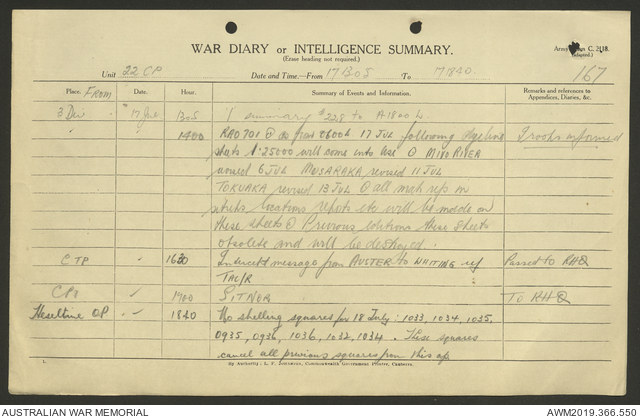 WAR DIARY or INTELLIGENCE SUMMARY.
(Erase heading not required.)
Army Form C. 2118.
(adapted.)
167
Unit 22 CP
Date and Time—From 1305 To 1840
Place. From Date. Hour. Summary of Events and Information. Remarks and references to Appendices, Diaries, &c.
3 Div 17 Jul 1305 "I" summary #228 to A1800 L
" 1400 from 0600 L 17 JUL following Troops informed
sheets 1:25000 will come into use MIVO RIVER
revised 6 JUL MOSARAKA revised 11 JUL
TOKUAKA revised 13 JUL all map refs on
locations reports etc will be made on
these sheets Previous editions these sheets
obsolete and will be destroyed.
CTP " 1630 Intercept message from AUSTER to WHITING ref Passed to RHQ
TAC/R
1700 SITNOR To RHQ
Heseltine OP " 1840 No shelling squares for 18 July: 1033, 1034, 1035,
0935, 0936, 1036, 1032, 1034. These squares
cancel all previous squares from this
1. By Authority: L. F. Johnston, Commonwealth Government Printer, Canberra.
AUSTRALIAN WAR MEMORIAL AWM2019.366.550